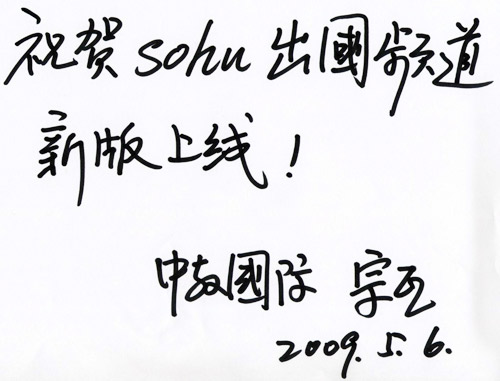 祝贺 sohu 出國频道
新版上线！
中教國际 宗瓦
2009.5.6.